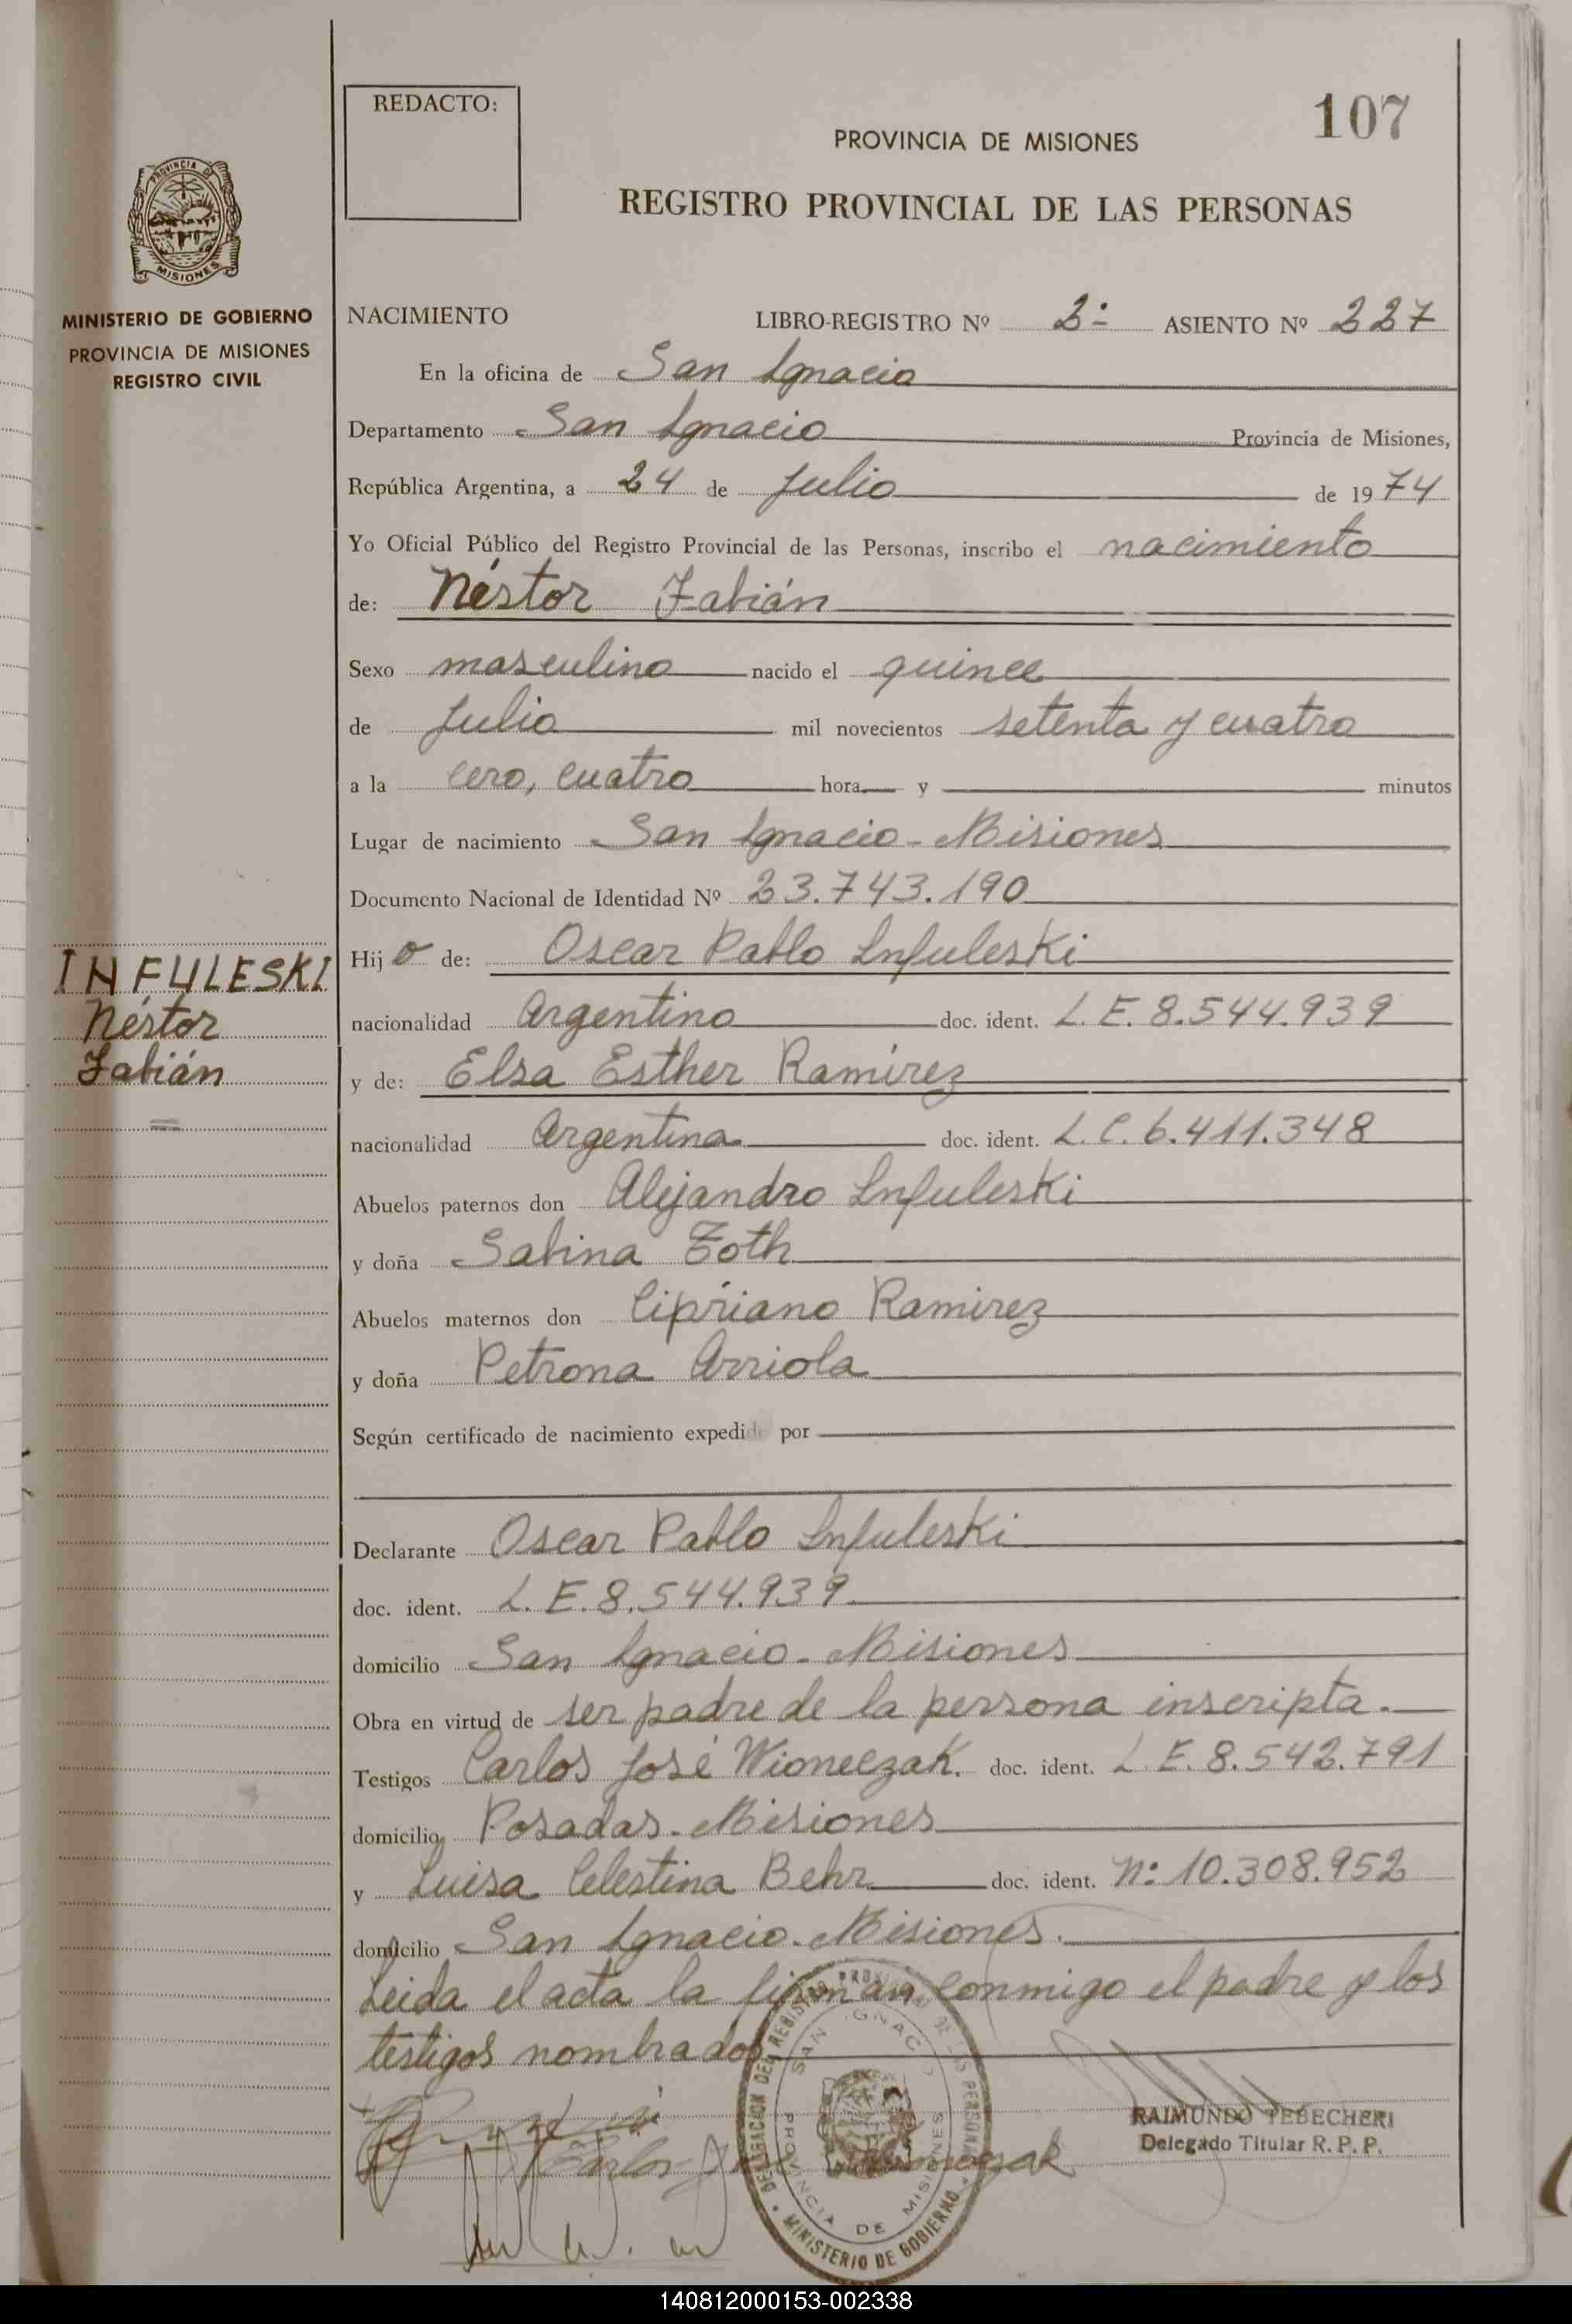 REDACTO:
107
PROVINCIA DE MISIONES
REGISTRO PROVINCIAL DE LAS PERSONAS
PROVINCIA DE
MISIONES
MINISTERIO DE GOBIERNO
PROVINCIA DE MISIONES
REGISTRO CIVIL
NACIMIENTO LIBRO-REGISTRO Nº 2º ASIENTO Nº 227
En la oficina de San Ignacio
Departamento San Ignacio Provincia de Misiones,
República Argentina, a 24 de Julio de 1974
Yo Oficial Público del Registro Provincial de las Personas, inscribo el nacimiento
de: Néstor Fabián
Sexo masculino nacido el quince
de Julio mil novecientos setenta y cuatro
a la cero, cuatro hora y minutos
Lugar de nacimiento San Ignacio - Misiones
Documento Nacional de Identidad Nº 23.743.190
Hijo de: Oscar Pablo Infuleski
INFULESKI
Néstor
Fabián
nacionalidad Argentino doc. ident. L.E. 8.544.939
y de: Elsa Esther Ramírez
nacionalidad Argentina doc. ident. L.C. 6.411.348
Abuelos paternos don Alejandro Infuleski
y doña Sabina Toth
Abuelos maternos don Cipriano Ramirez
y doña Petrona Arriola
Según certificado de nacimiento expedido por
Declarante Oscar Pablo Infuleski
doc. ident. L.E. 8.544.939
domicilio San Ignacio - Misiones
Obra en virtud de ser padre de la persona inscripta.
Testigos Carlos José Wioneczak. doc. ident. L.E. 8.542.791
domicilio Posadas - Misiones
y Luisa Celestina Behr doc. ident. Nº 10.308.952
domicilio San Ignacio - Misiones.
Leida el acta la firman conmigo el padre y los
testigos nombrados
DELEGACION DEL REGISTRO PROVINCIAL DE LAS PERSONAS
SAN IGNACIO
PROVINCIA DE MISIONES
MINISTERIO DE GOBIERNO
RAIMUNDO TEBECHERI
Delegado Titular R. P. P.
Carlos
140812000153-002338